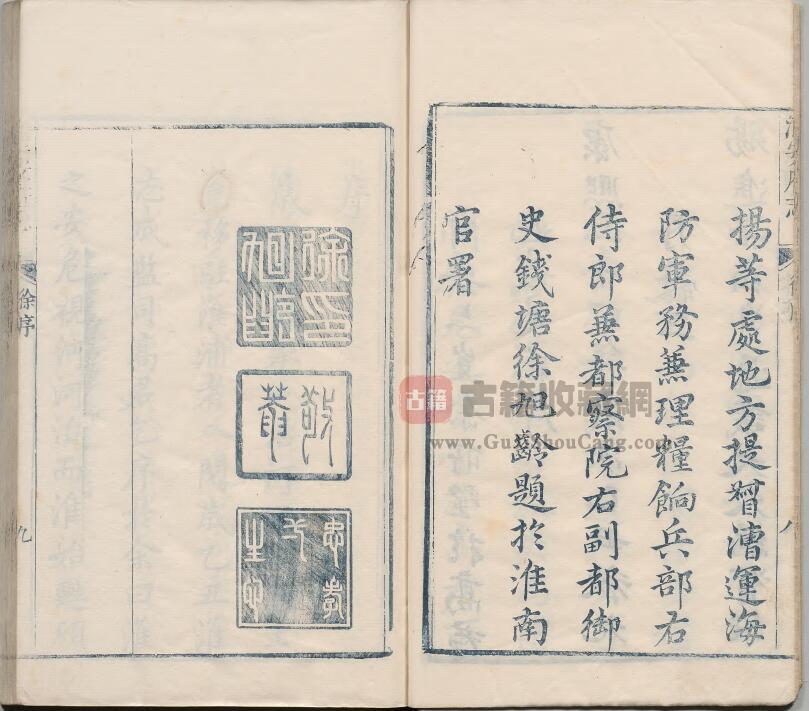 淮安府志
徐序
八
揚等處地方提督漕運海
防軍務兼理糧餉兵部右
侍郎兼都察院右副都御
史錢塘徐旭齡題於淮南
官署
徐印旭齡
敬菴
徐序
九
古籍
古籍收藏網
www.GuJiShouCang.com